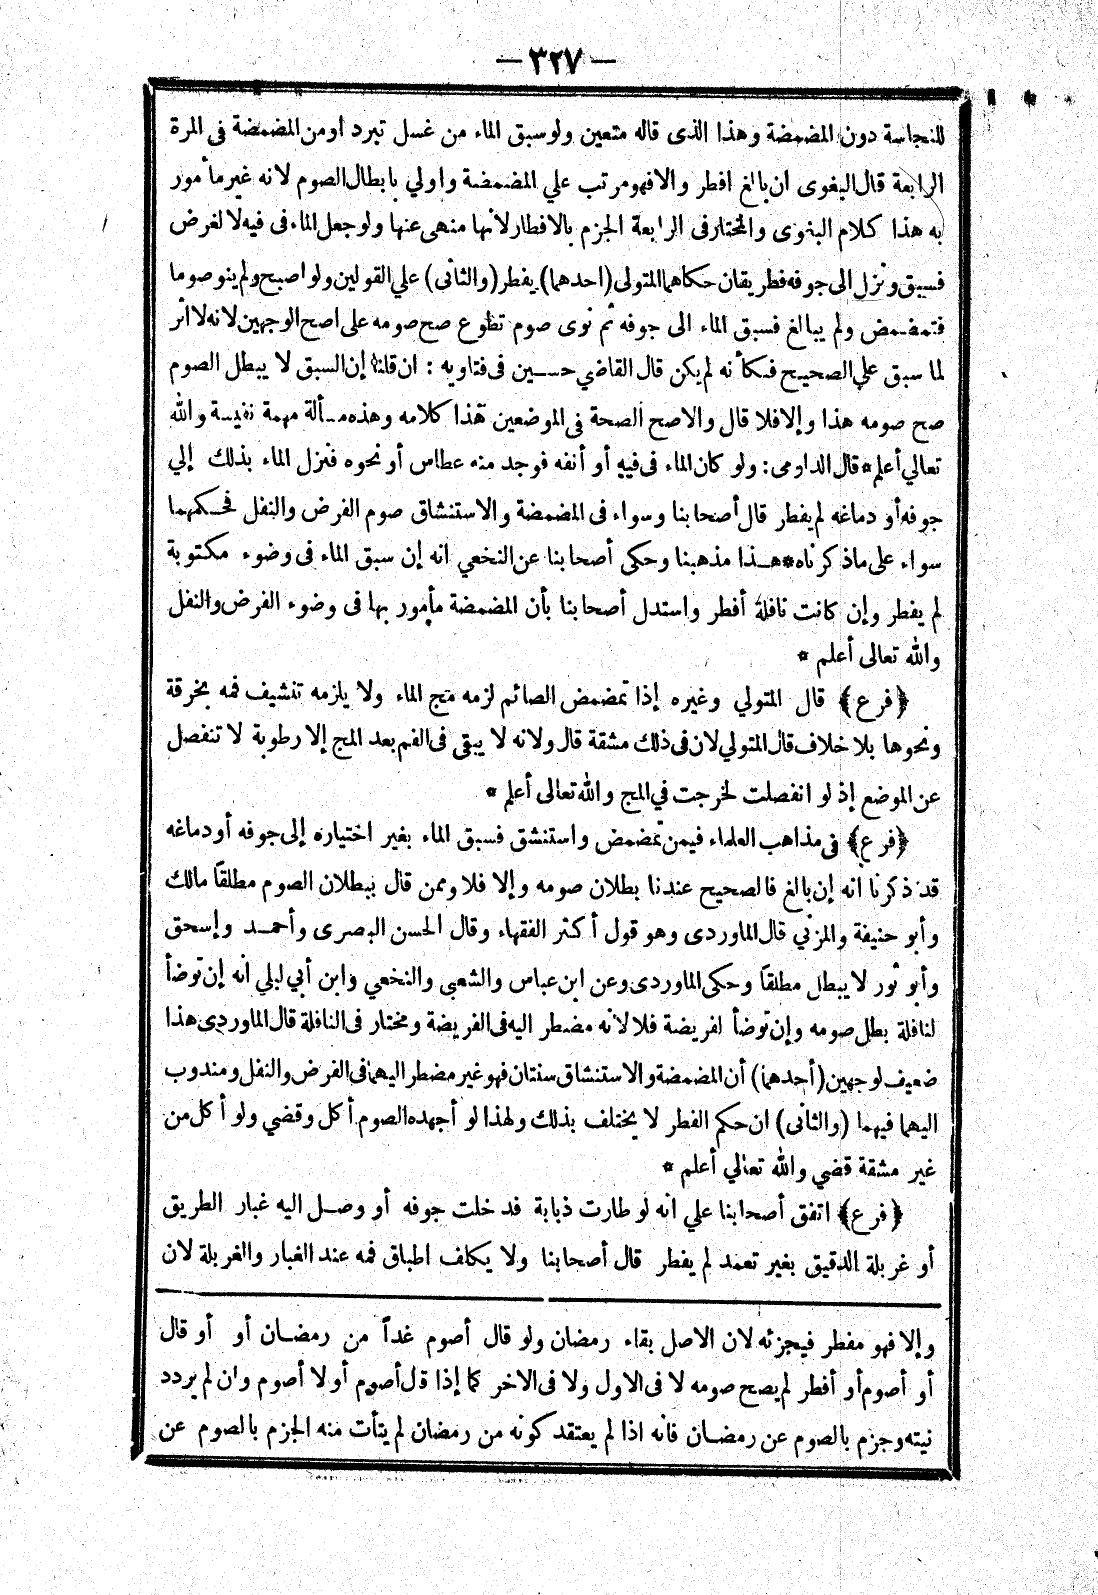 — ٣٢٧ —
للنجاسة دون المضمضة وهذا الذى قاله متعين ولو سبق الماء من غسل تبرد أو من المضمضة فى المرة
الرابعة قال البغوى ان بالغ افطر والا فهو مرتب علي المضمضة واولي بابطال الصوم لانه غير مأمور
به هذا كلام البغوى والمختار فى الرابعة الجزم بالافطار لانها منهى عنها ولو جعل الماء فى فيه لا لغرض
فسبق ونزل الى جوفه فطريقان حكاهما المتولى (احدهما) يفطر (والثانى) علي القولين ولو اصبح ولم ينو صوما
فتمضمض ولم يبالغ فسبق الماء الى جوفه ثم نوى صوم تطوع صح صومه على اصح الوجهين لانه لا اثر
لما سبق علي الصحيح فكأنه لم يكن قال القاضي حسين فى فتاويه : ان قلنا إن السبق لا يبطل الصوم
صح صومه هذا وإلا فلا قال والاصح الصحة فى الموضعين هذا كلامه وهذه مسألة مهمة نفيسة والله
تعالي أعلم * قال الدارمى : ولو كان الماء فى فيه أو أنفه فوجد منه عطاس أو نحوه فنزل الماء بذلك إلي
جوفه أو دماغه لم يفطر قال أصحابنا وسواء فى المضمضة والاستنشاق صوم الفرض والنفل فحكمهما
سواء على ماذكرناه * هذا مذهبنا وحكى أصحابنا عن النخعي انه إن سبق الماء فى وضوء مكتوبة
لم يفطر وإن كانت نافلة أفطر واستدل أصحابنا بأن المضمضة مأمور بها فى وضوء الفرض والنفل
والله تعالى أعلم *
﴿ فرع ﴾ قال المتولي وغيره إذا تمضمض الصائم لزمه مج الماء ولا يلزمه تنشيف فمه بخرقة
ونحوها بلا خلاف قال المتولي لان فى ذلك مشقة قال ولانه لا يبقى فى الفم بعد المج إلا رطوبة لا تنفصل
عن الموضع إذ لو انفصلت لخرجت في المج والله تعالى أعلم *
﴿ فرع ﴾ فى مذاهب العلماء فيمن تمضمض واستنشق فسبق الماء بغير اختياره إلى جوفه أو دماغه
قد ذكرنا انه إن بالغ فالصحيح عندنا بطلان صومه وإلا فلا وممن قال ببطلان الصوم مطلقاً مالك
وأبو حنيفة والمزني قال الماوردى وهو قول أكثر الفقهاء وقال الحسن البصرى وأحمد وإسحق
وأبو ثور لا يبطل مطلقاً وحكى الماوردى وعن ابن عباس والشعبى والنخعي وابن أبي ليلي انه إن توضأ
لنافلة بطل صومه وإن توضأ لفريضة فلا لانه مضطر اليه فى الفريضة ومختار فى النافلة قال الماوردى هذا
ضعيف لوجهين (أحدهما) أن المضمضة والاستنشاق سنتان فهو غير مضطر اليهما فى الفرض والنفل ومندوب
اليهما فيهما (والثانى) ان حكم الفطر لا يختلف بذلك ولهذا لو أجهده الصوم أكل وقضي ولو أكل من
غير مشقة قضي والله تعالي أعلم *
﴿ فرع ﴾ اتفق أصحابنا علي انه لو طارت ذبابة فدخلت جوفه أو وصل اليه غبار الطريق
أو غربلة الدقيق بغير تعمد لم يفطر قال أصحابنا ولا يكلف اطباق فمه عند الغبار والغربلة لان
وإلا فهو مفطر فيجزئه لان الاصل بقاء رمضان ولو قال أصوم غداً من رمضان أو أو قال
أو أصوم أو أفطر لم يصح صومه لا فى الاول ولا فى الاخر كما إذا قل أصوم أو لا أصوم وان لم يردد
نيته وجزم بالصوم عن رمضان فانه اذا لم يعتقد كونه من رمضان لم يتأت منه الجزم بالصوم عن